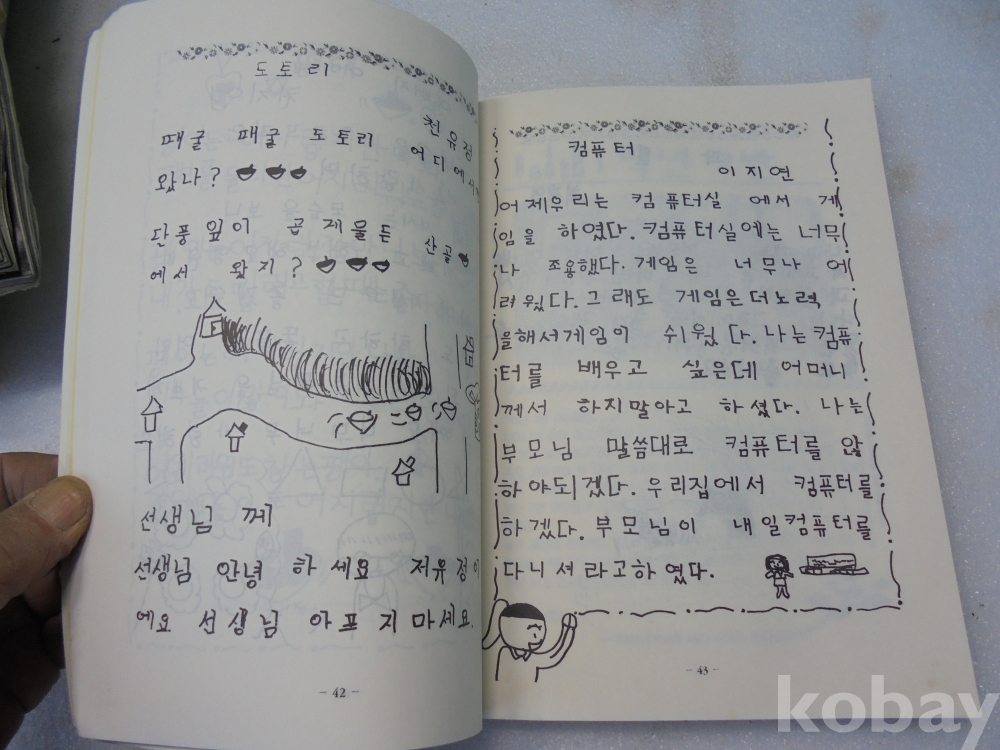 도토리
천유정
때굴 때굴 도토리 어디에서
왔나?
단풍잎이 곱게물든 산골
에서 왔지?
선생님 께
선생님 안녕 하세요 저유정이
에요 선생님 아프지마세요.
- 42 -
컴퓨터
이지연
어제우리는 컴퓨터실 에서 게
임을 하였다. 컴퓨터실에는 너무
나 조용했다. 게임은 너무나 어
려웠다. 그래도 게임은더노력
을해서게임이 쉬웠다. 나는컴퓨
터를 배우고 싶은데 어머니
께서 하지말아고 하셨다. 나는
부모님 말씀대로 컴퓨터를 않
하야되겠다. 우리집에서 컴퓨터를
하겠다. 부모님이 내일컴퓨터를
다니셔라고하였다.
- 43 -
kobay